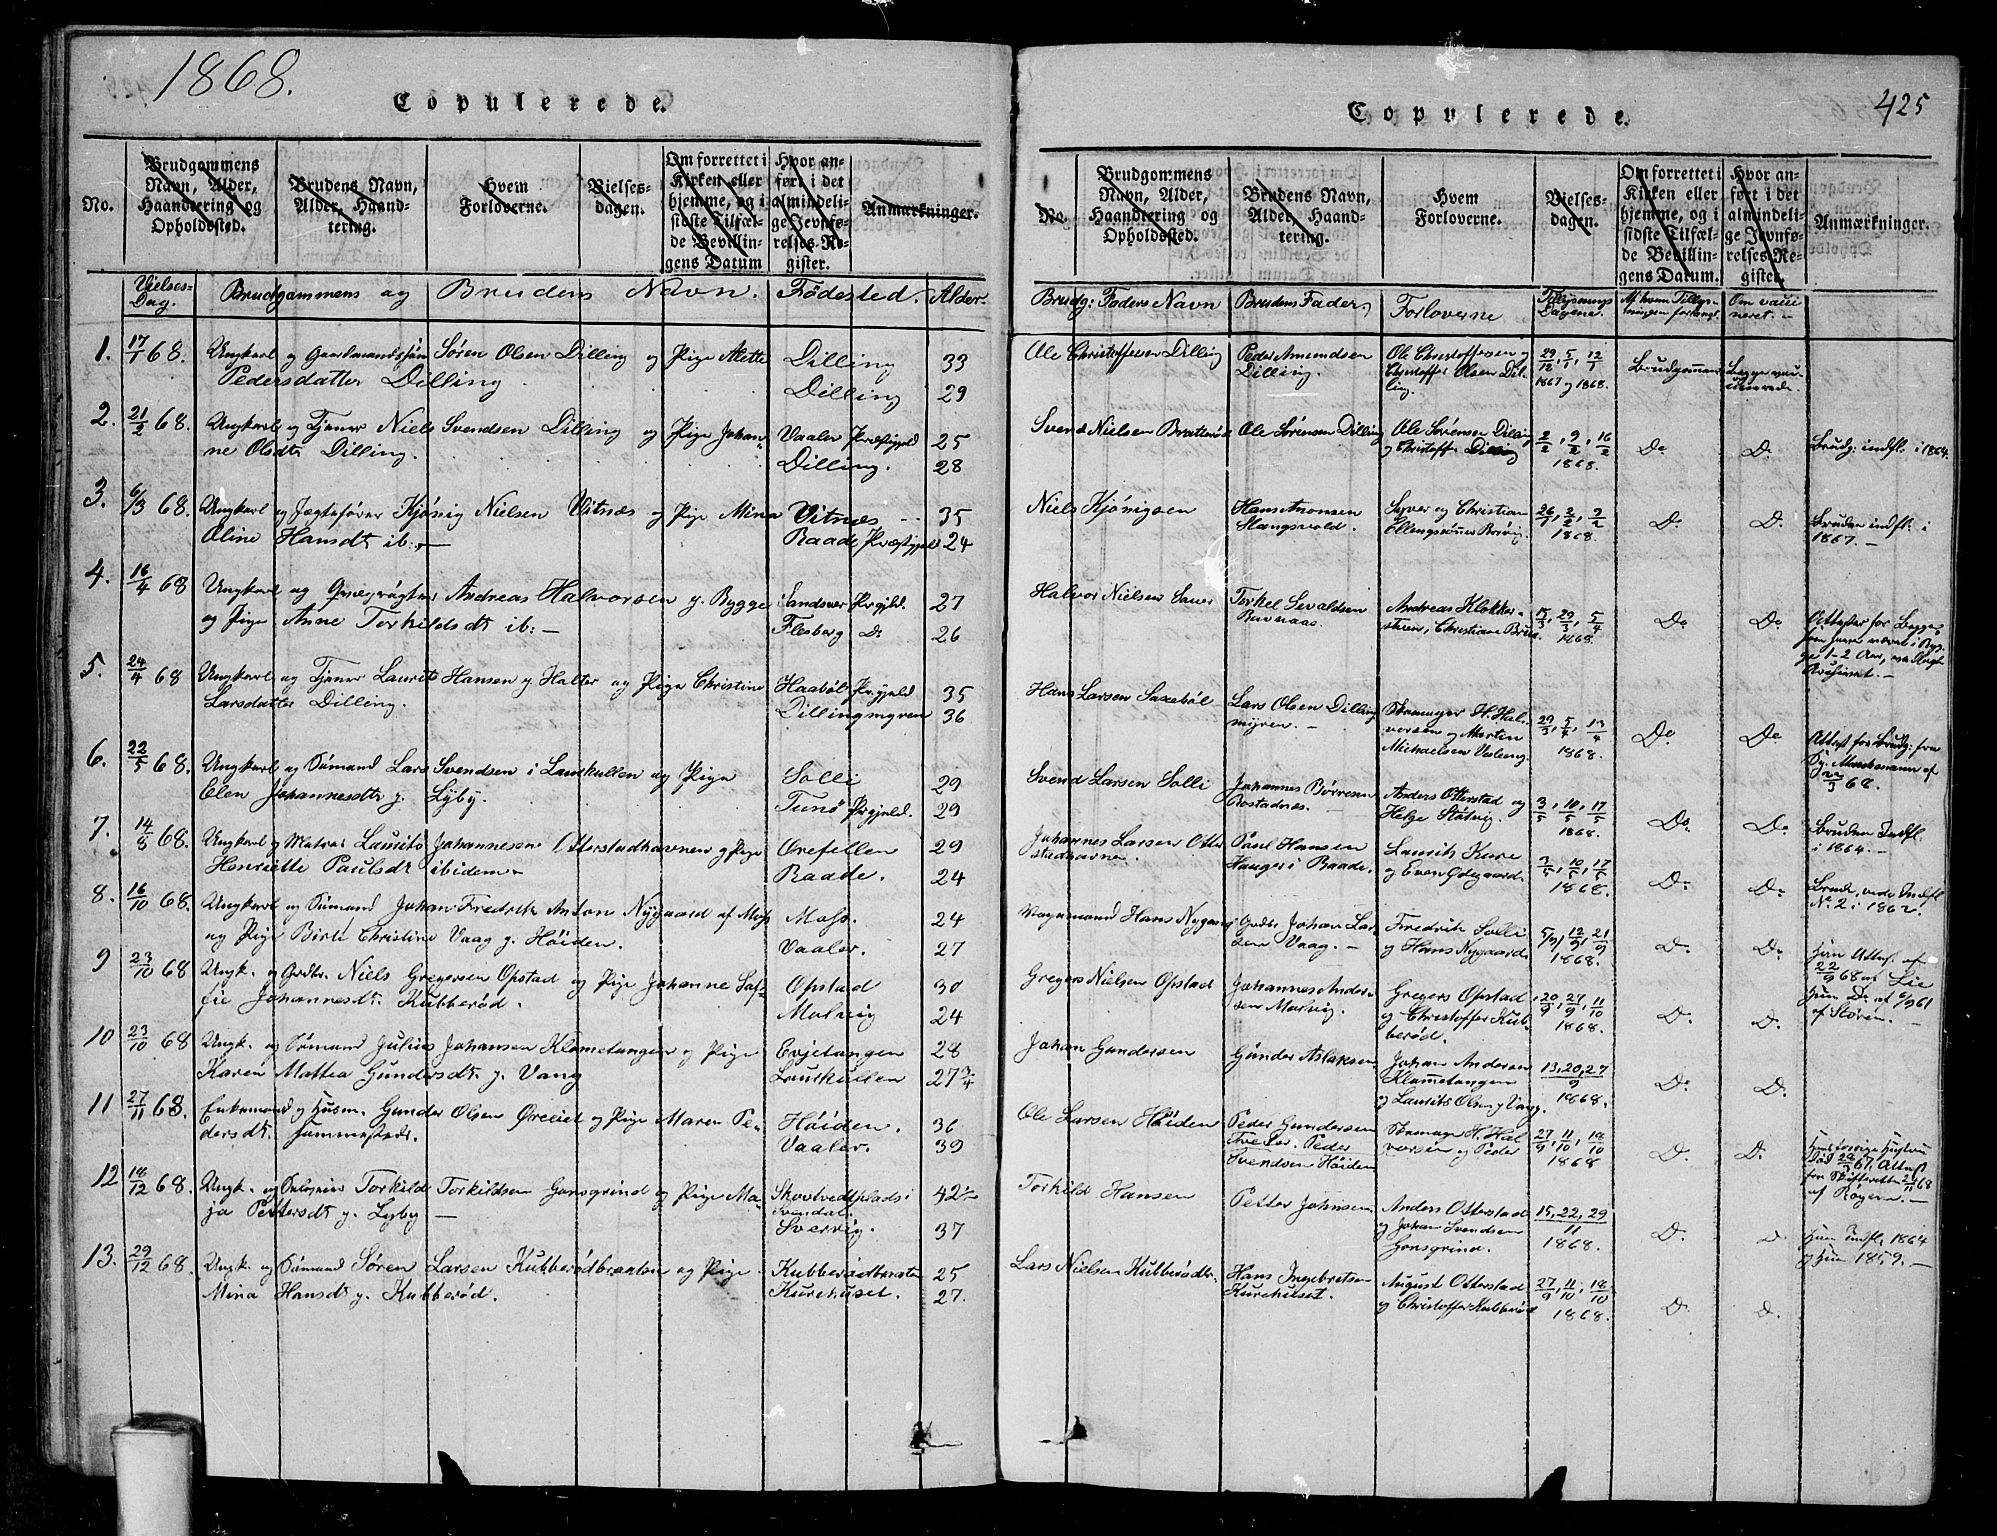 1868.
Copulerede.
No.
Brudgommens Navn, Alder, Haandtering og Opholdssted.
Brudens Navn, Alder, Haandtering.
Hvem Forloverne.
Vielsesdagen.
Om forrettet i Kirken eller hjemme, og i sidste Tilfælde Bevillingens Datum
Hvor anført i det almindelige Jevnførelses-Register.
Anmærkninger.
Vielses-Dag. Brudgommens og Brudens Navn. Fødested. Alder.
1. 17/1 68. Ungkarl og Gaardmandssøn Søren Olsen Dilling og Pige Alette Dilling 33
Pedersdatter Dilling Dilling 29
2. 21/2 68. Ungkarl og Tjener Niels Svendsen Dilling og Pige Johan- Vaaler Præstgjeld 25
ne Olsdt Dilling. Dilling. 28
3. 6/3 68. Ungkarl og Jægtefører Kjønig Nielsen Vitnæs og Pige Mina Vitnæs 35
Oline Hansdt ib: Raade Præstgjeld 24
4. 16/4 68 Ungkarl og Andreas Halvorsen y. Bygge Sandsvær Prgjeld. 27
og Pige Anne Torkildsdt ib: Flesberg Do 26
5. 24/4 68 Ungkarl og Tjener Laurits Hansen y. Halter og Pige Christine Haabøl Prgjeld 35
Larsdatter Dilling. Dillingmyren 36
6. 22/5 68. Ungkarl og Sømand Lars Svendsen i Laukullen og Pige Solli 29
Elen Johannesdtr y. Lyby. Tunø Prgjeld. 29
7. 14/8 68. Ungkarl og Matros Laurits Johannesen Otterstadhavnen og Pige Orefellen 29
Henriette Paulsdt ibidem Raade. 24
8. 16/10 68. Ungkarl og Sømand Johan Fredrik Anton Nygaard af Moss Moss. 24
og Pige Birte Christine Vaag y. Höiden. Vaaler. 27
9 23/10 68 Ungk. og Grdbr. Niels Gregersen Opstad og Pige Johanne Sof- Opstad 30
fie Johannesdt. Kubberød. Molvig 24
10 23/10 68 Ungk. og Sømand Julius Johansen Klometangen og Pige Evjetangen 28
Karen Mattea Gundersdt. y. Vang Laukullen 27 3/4
11 27/11 68. Enkemand og Husm. Gunder Olsen Øreeiet og Pige Maren Pe- Höiden. 36
dersdt. Vaaler. 39
12 18/12 68. Ungk. og Torkild Torkildsen Gonsgrind og Pige Ma- Skovtvedtplads i 42 1/2
ja Pettersdt y. Lyby Svendal. Svervig. 37
13. 29/12 68. Ungk. og Sømand Søren Larsen Kubberødbraaten og Pige Kubberödbraaten 25
Mina Hansdt y. Kubberød. Kurehuset. 27.
Copulerede.
425
No.
Brudgommens Navn, Alder, Haandtering og Opholdssted.
Brudens Navn, Alder, Haandtering.
Hvem Forloverne.
Vielsesdagen.
Om forrettet i Kirken eller hjemme, og i sidste Tilfælde Bevillingens Datum.
Hvor anført i det almindelige Jevnførelses-Register.
Anmærkninger.
Brudg: Faders Navn Brudens Fader Forloverne Tillysnings Dagene. Af hvem Tillysningen forlangt. Om vaccineret.
Ole Christoffersen Dilling Peder Amundsen Dilling. Ole Christoffersen og Christoffer Olsen Dilling. 29/12, 5/1, 12/1 1867 og 1868. Brudgommen Begge vaccinerede.
Svend Nielsen Bratterød Ole Sørensen Dilling Ole Sørensen Dilling og Christoffer Dilling 2/2, 9/2, 16/2 1868. Do Do. Brudg: indfl. i 1864.
Niels Kjønigsen Hans Aronsen Slangsvold. Syver og Christian Ellingsønner Rørvig. 26/1, 2/2, 9/2 1868. Do Do. Bruden indfl: i 1867.
Halvor Nielsen Torkel Sevaldsen Ravnaas. Andreas Klokkersteen, Christian Brun. 15/3, 29/3, 5/4 1868. Do Do Attester for Begge,
Hans Larsen Lars Olsen Dillingmyren. H. Halvorsen og Martin Michaelsen Valeng. 29/3, 5/4, 13/4 1868. Do Do Attest for Brudg: fra 68.
Svend Larsen Solli Johannes Børresen Anders Otterstad og Helge Støtvig. 3/5, 10/5, 17/5 1868. Do. Do. Bruden Indfl. i 1864.
Johannes Larsen Otterstadhavne. Paul Hansen Hauger i Raade. Laurits Kure og Even Ødegaard. 3/5, 10/5, 17/5 1868. Do. Do. Brud. vide Indfl No 2 i 1862.
Vognmand Hans Nygaard Grdbr. Johan Larsen Vaag. Fredrik Solli og Hans Nygaard. 5/9, 12/9, 21/9 1868. Do. Do. Han Attest af 22/9 68 af Lie Hun Do. af 6/9 61 af Sløren.
Gregers Nielsen Opstad Johannes Andersen Molvig. Gregers Opstad og Christoffer Kubberød. 20/9, 27/9, 11/10 1868. Do. Do.
Johan Gundersen Gunder Aslaksen Johan Andersen Klometangen og Laurits Olsen y Vang. 13, 20, 27/9 1868. Do Do.
Ole Larsen Höiden Peder Gundersen Tveter. Peder Svendsen Höiden H. Halvorsen og Peder 27/9, 11/10, 18/10 1868 Do. Do. Hans forrige Hustru død 67. Attest fra Skifteretten 68 af Røyem.
Torkild Hansen Petter Johnsen Anders Otterstad og Johan Svendsen Gonsgrind. 15, 22, 29/11 1868. Do. Do Han indfl. 1864 og Hun 1859.
Lars Nielsen Kubberødbr. Hans Ingebretsen Kurehuset. August Otterstad og Christoffer Kubberød 27/9, 11/10, 18/10 1868. Do. Do.